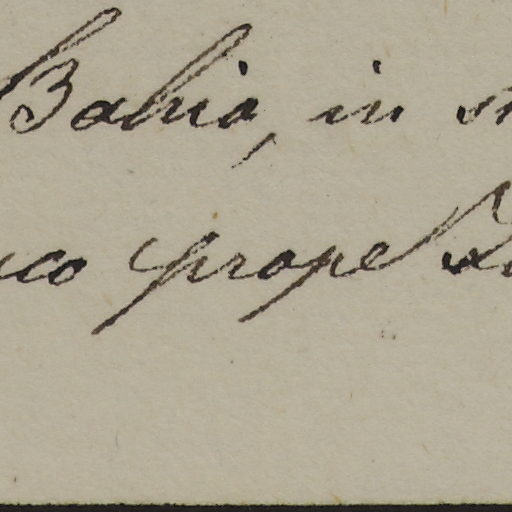 Bahia, in
prope